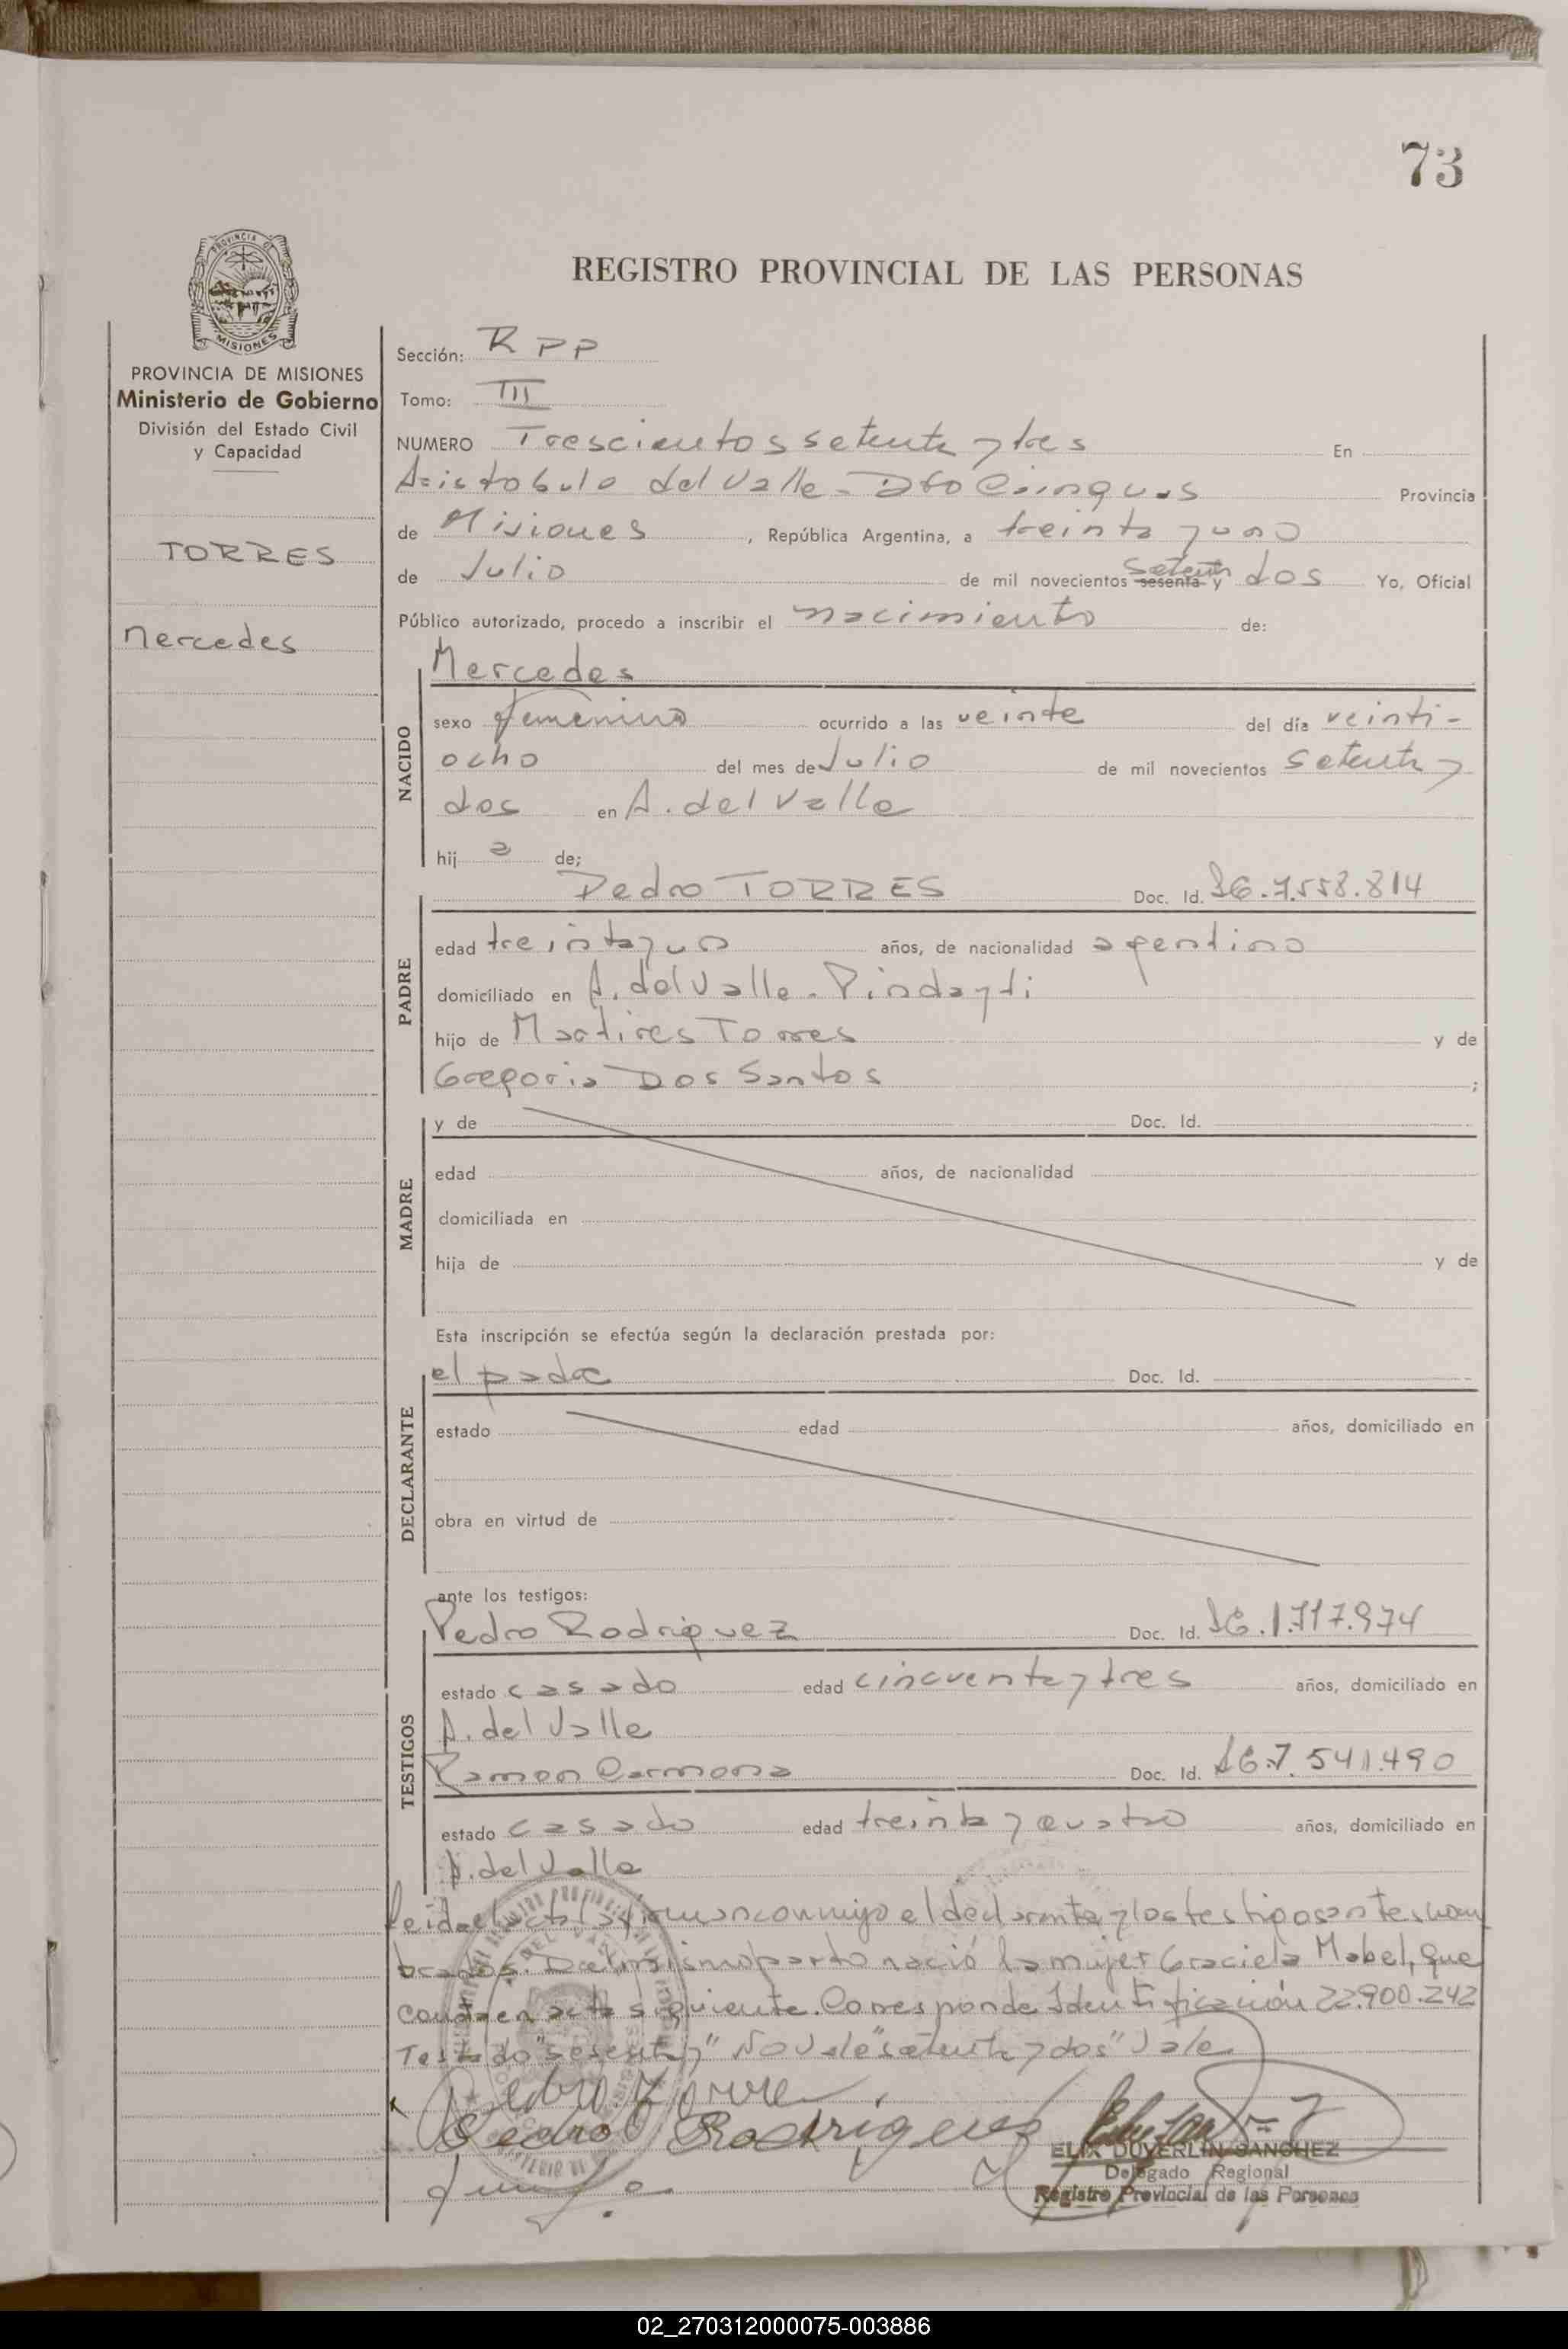 73
REGISTRO PROVINCIAL DE LAS PERSONAS
PROVINCIA DE MISIONES
Ministerio de Gobierno
División del Estado Civil
y Capacidad
TORRES
Mercedes
Sección: RPP
Tomo: III
NUMERO Trescientos setenta y tres En
Aristobulo del Valle - Dto Cainguas Provincia
de Misiones, República Argentina, a treinta y uno
de Julio de mil novecientos sesenta y setenta dos Yo, Oficial
Público autorizado, procedo a inscribir el nacimiento de:
NACIDO
Mercedes
sexo femenino ocurrido a las veinte del día veinti-
ocho del mes de Julio de mil novecientos setenta y
dos en A. del Valle
hij a de;
PADRE
Pedro TORRES Doc. Id. I6.7.558.814
edad treinta y uno años, de nacionalidad argentino
domiciliado en A. del Valle - Pindayti
hijo de Martires Torres y de
Gregoria Dos Santos ;
MADRE
y de Doc. Id.
edad años, de nacionalidad
domiciliada en
hija de y de
Esta inscripción se efectúa según la declaración prestada por:
DECLARANTE
el padre Doc. Id.
estado edad años, domiciliado en
obra en virtud de
ante los testigos:
TESTIGOS
Pedro Rodriguez Doc. Id. I6.1.717.974
estado casado edad cincuenta y tres años, domiciliado en
A. del Valle
Ramon Carmona Doc. Id. I6.7.541.490
estado casado edad treinta y cuatro años, domiciliado en
A. del Valle
Leida el acta la firman conmigo el declarante y los testigos antes nom
brados. Del mismo parto nació la mujer Graciela Mabel, que
consta en acta siguiente. Corresponde Identificación 22.900.242
Testado "sesenta y" No Vale "setenta y dos" Vale.
Pedro Torre
Pedro Rodriguez
ELIX DUVERLIN SANCHEZ
Delegado Regional
Registro Provincial de las Personas
02_270312000075-003886